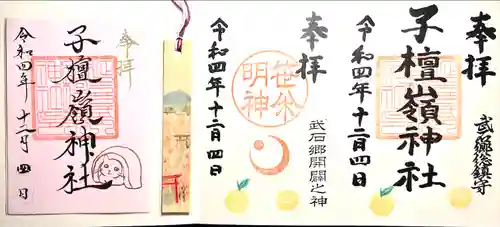 奉拝
武石郷総鎮守
子檀嶺神社
令和四年十二月四日
奉拝
武石郷開闢之神
笹焼
明神
令和四年十二月四日
奉拝
子檀嶺神社
令和四年十二月四日